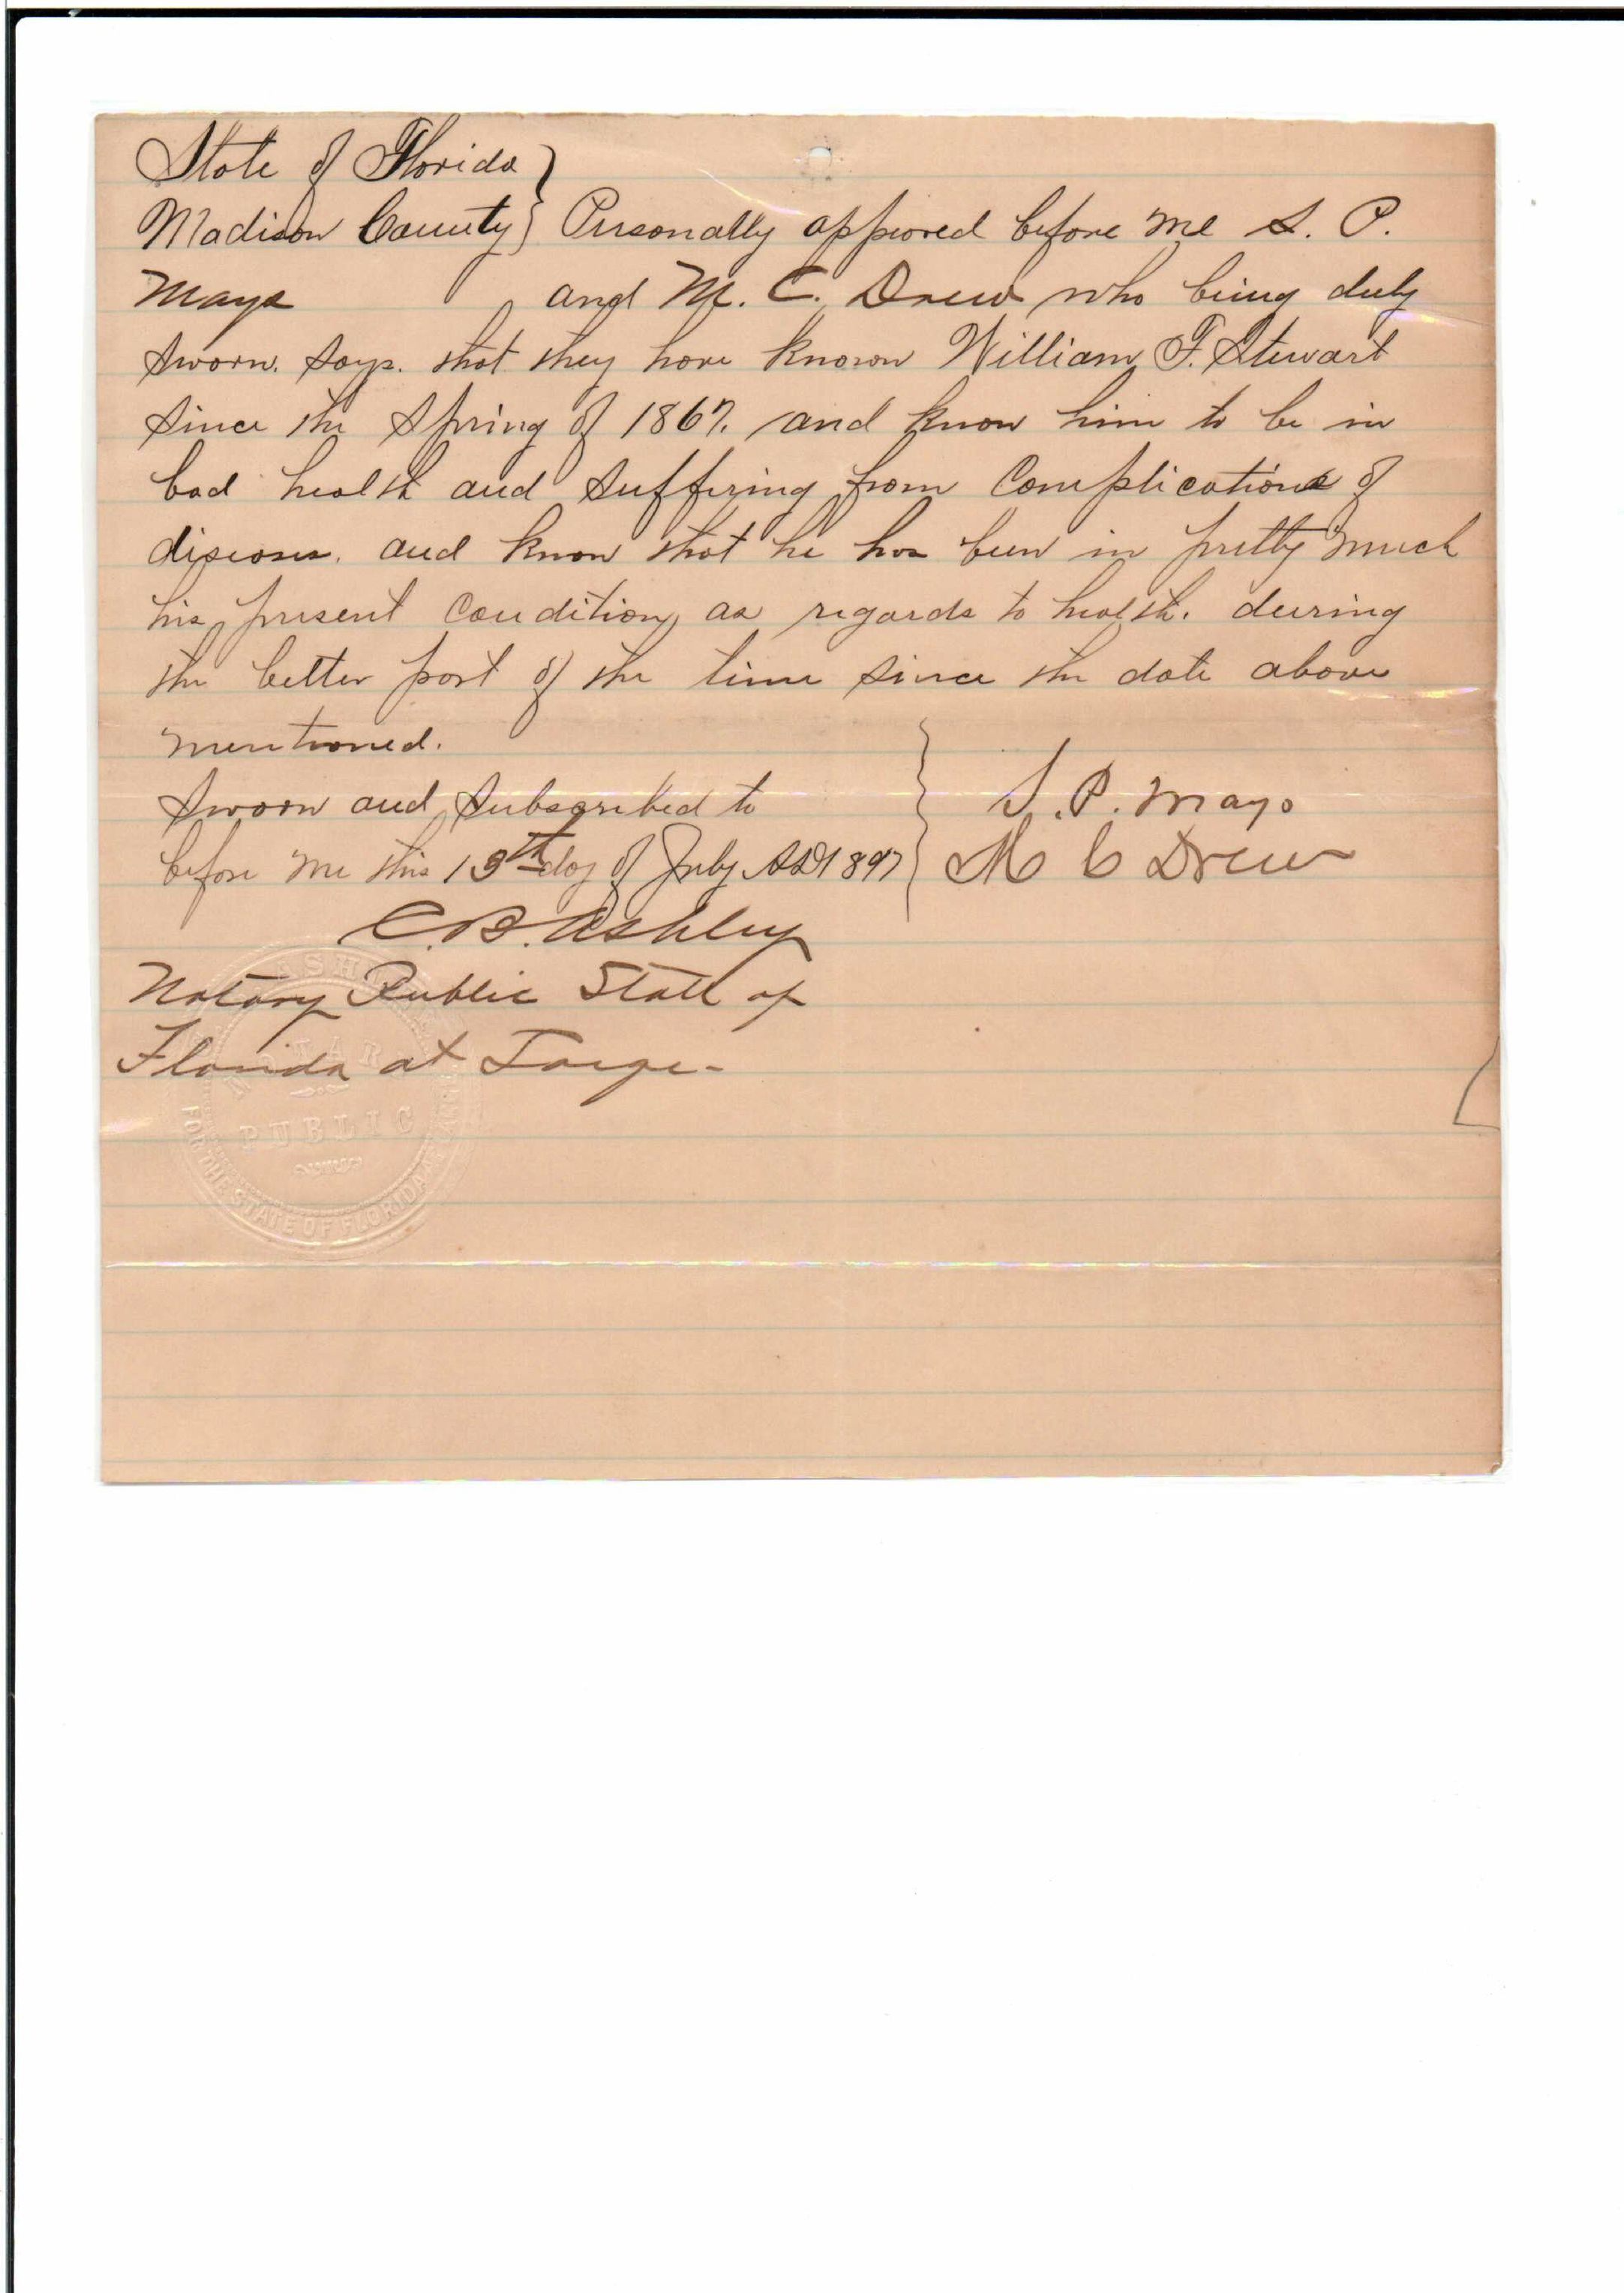 State of Florida }
Madison County } Personally appeared before me S. P.
Mays and M. C. Drew who being duly
sworn. says. that they have known William F. Stewart
since the Spring of 1867. and know him to be in
bad health and suffering from Complications of
diseases. and know that he has been in pretty much
his present Condition, as regards to health. during
the better part of the time since the date above
mentioned.
Sworn and Subscribed to } S. P. Mays
before me this 13th day of July AD 1897 } M C Drew
C. B. Ashley
Notary Public State of
Florida at Large-
PUBLIC
FOR THE STATE OF FLORIDA